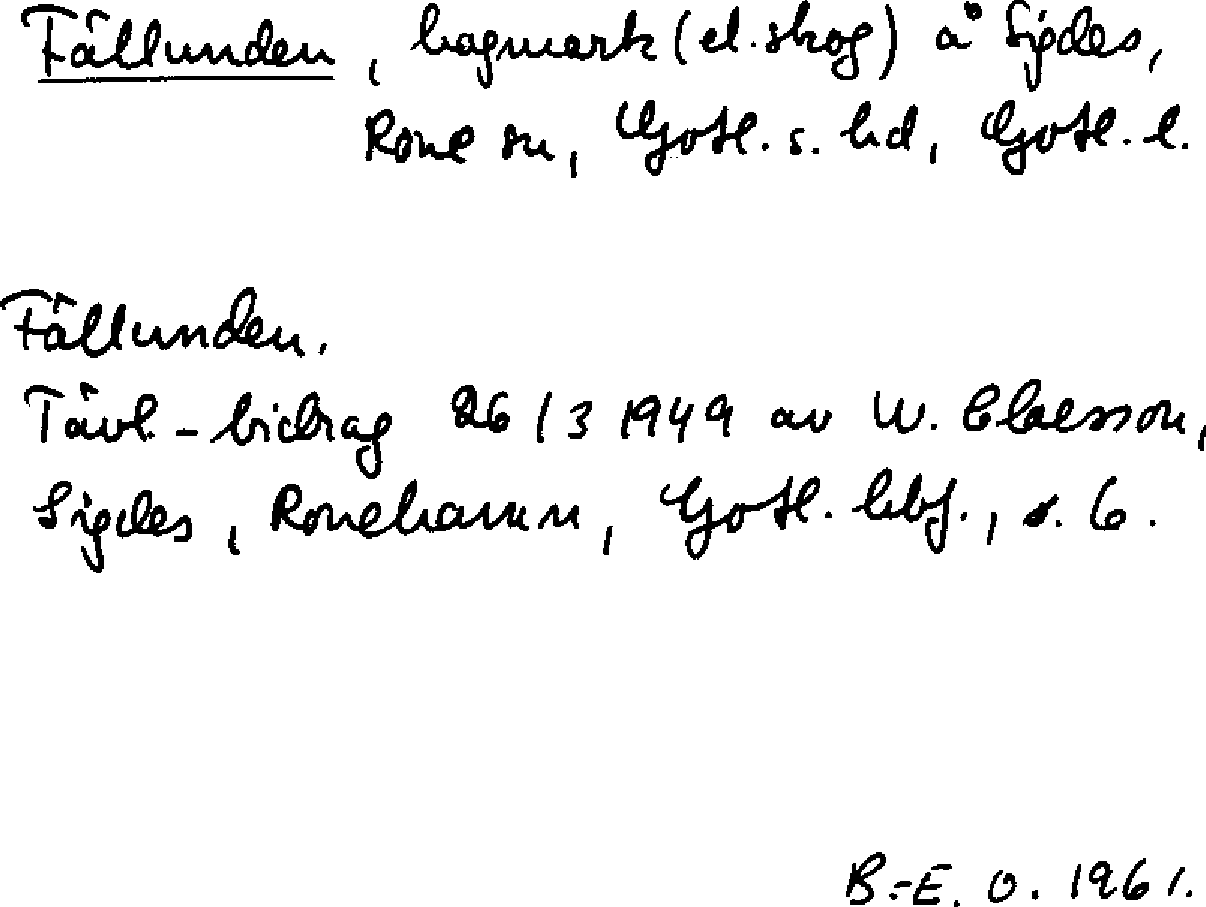 Fällunden, hagmark (el. skog) å Sigdes,
Rone sn, Gotl. s. hd, Gotl. l.
Fällunden.
Tävl.-bidrag 26/3 1949 av W. Claesson,
Sigdes, Ronehamn, Gotl. hbf., s. 6.
B.-E. O. 1961.